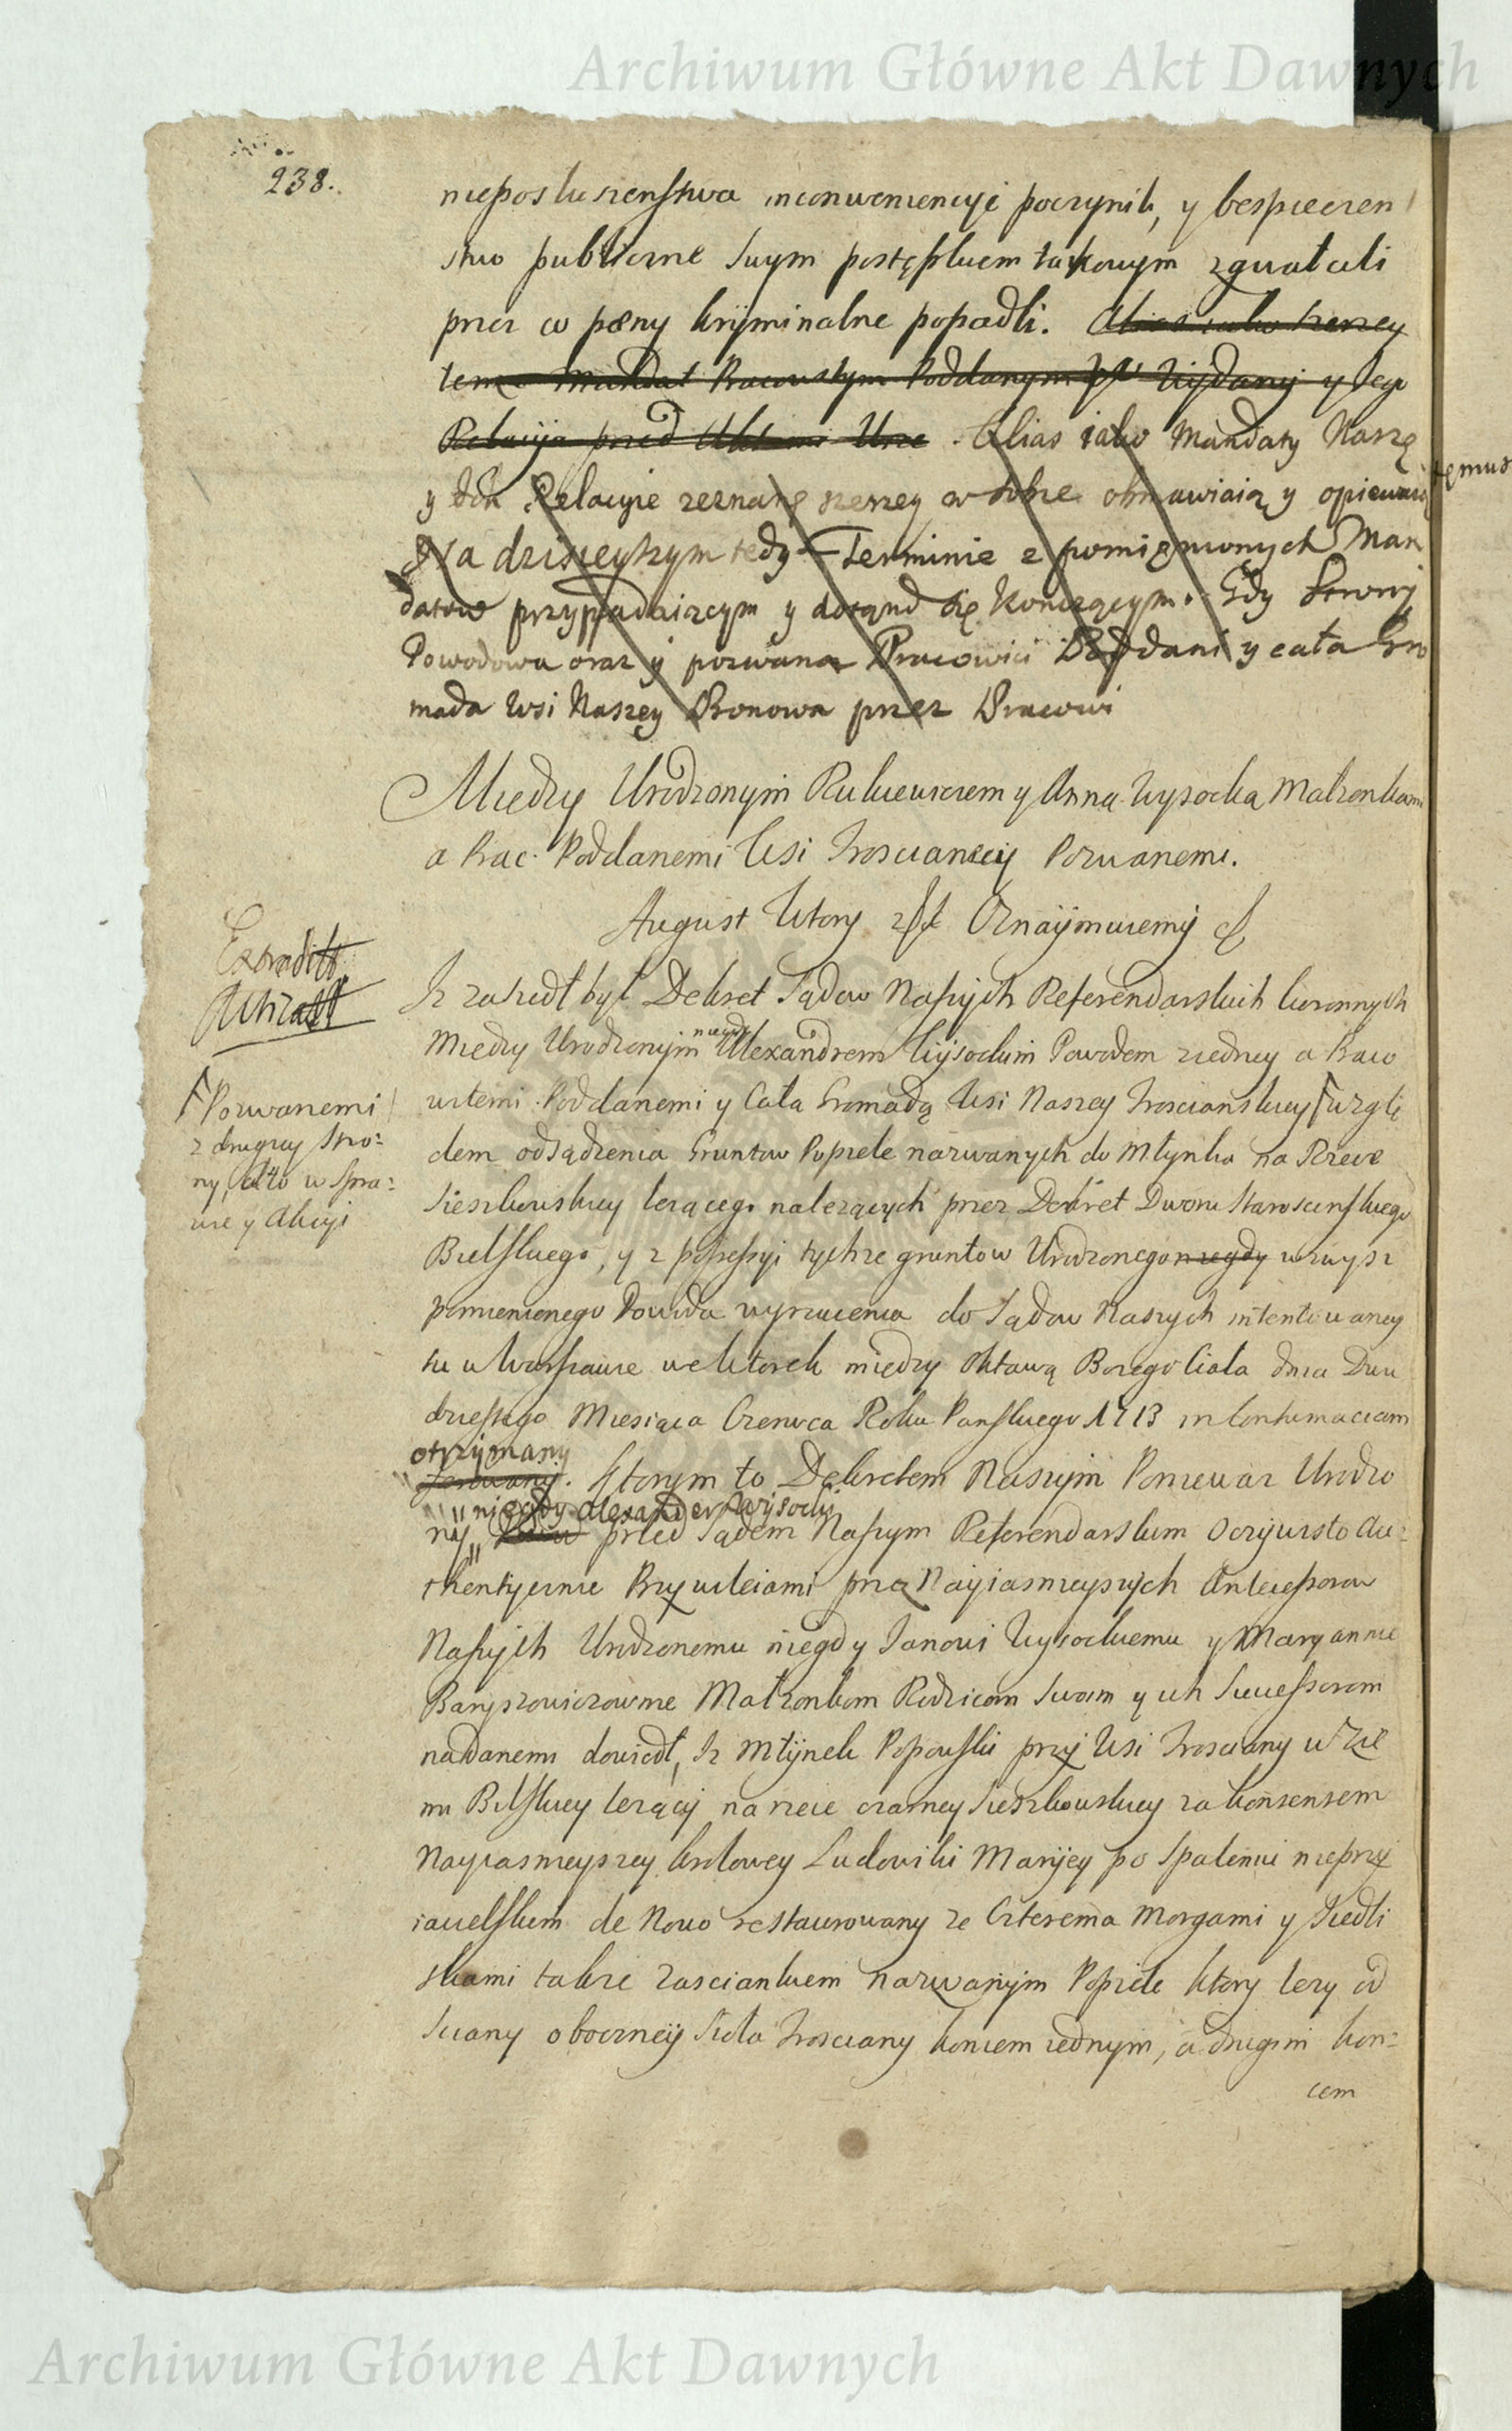 Archiwum Główne Akt Dawnych
238.
nieposłuszenstwa inconveniencyi poczynili, y bespieczen
stwo publiczne swym postępkiem takowym zgwałcili
przez co pæny kryminalne popadli. Alias iako szerzey
tenze Mandat Pracowitym Poddanym Wydany y Jego
Relacyja przed Aktami Urze. Alias iako Mandaty Nasze
y ich Relacyie zeznane szerzey w sobie obmawiaią y opiewaią
Na dzisieyszym tedy Terminie z pomięnionych Man
datow przypadaiącym y dotąnd się konczącym. Gdy Strony
Powodowa oraz y pozwana Pracowici Poddani y cała Gro
mada Wsi Naszey Bronowa przez Pracowi
Między Urodzonym Rukiewiczem y Anną Wysocką Małzonkami
a Prac. Poddanemi Wsi Trosciansciy Pozwanemi.
August Wtory Oznaymuiemy
Extradit.
Iz zaszedł był Dekret Sądow Naszych Referendarskich koronnych
między Urodzonym niegdy Alexandrem Wysockim Powodem z iedney a Praco
witemi Poddanemi y Całą Gromadą Wsi Naszey Troscianskiey wzglę
Pozwanemi
z drugiey Stro=
ny, w Spra=
wie y Akcyi
dem odsądzenia Gruntow Popiele nazwanych do Młynka na Rzece
Sieszkowskiey lezącego nalezących przez Dekret Dworu Staroscinskiego
Bielskiego, y z possessyi tychze gruntow Urodzonego niegdy wzwysz
pomienionego Powoda wyrzucenia do Sądow Naszych intentowaney
tu w Warszawie we Wtorek między Oktawą Bozego Ciała dnia Dwu
dziestego Miesiąca Czerwca Roku Panskiego 1713 in Contumaciam
otrzymany
ferowany. Ktorym to Dekretem Naszym Poniewaz Urodzo
niegdy Alexander Wysocki
ny przed Sądem Naszym Referendarskim Oczywisto Au=
thentycznie Przywileiami przez Nayiasnieyszych Antecessorow
Naszych Urodzonemu niegdy Janowi Wysockiemu y Maryannie
Baryszowiczownie Małzonkom Rodzicom swoim y ich Successorom
nadanemi dowiodł, Iz Młynek Popowski przy Wsi Trosciany w Zie
mi Bielskiey lezącej na rzece czarney Sieszkowskiey za konsensem
Nayiasnieyszey krolowey Ludowiki Maryey po Spaleniu nieprzy
iacielskim de Novo restaurowany ze Czterema Morgami y siedli
skami takze zasciankiem nazwanym Popiele ktory lezy od
sciany oboczney Sioła Trosciany koncem iednym, a drugim kon=
cem
Archiwum Główne Akt Dawnych